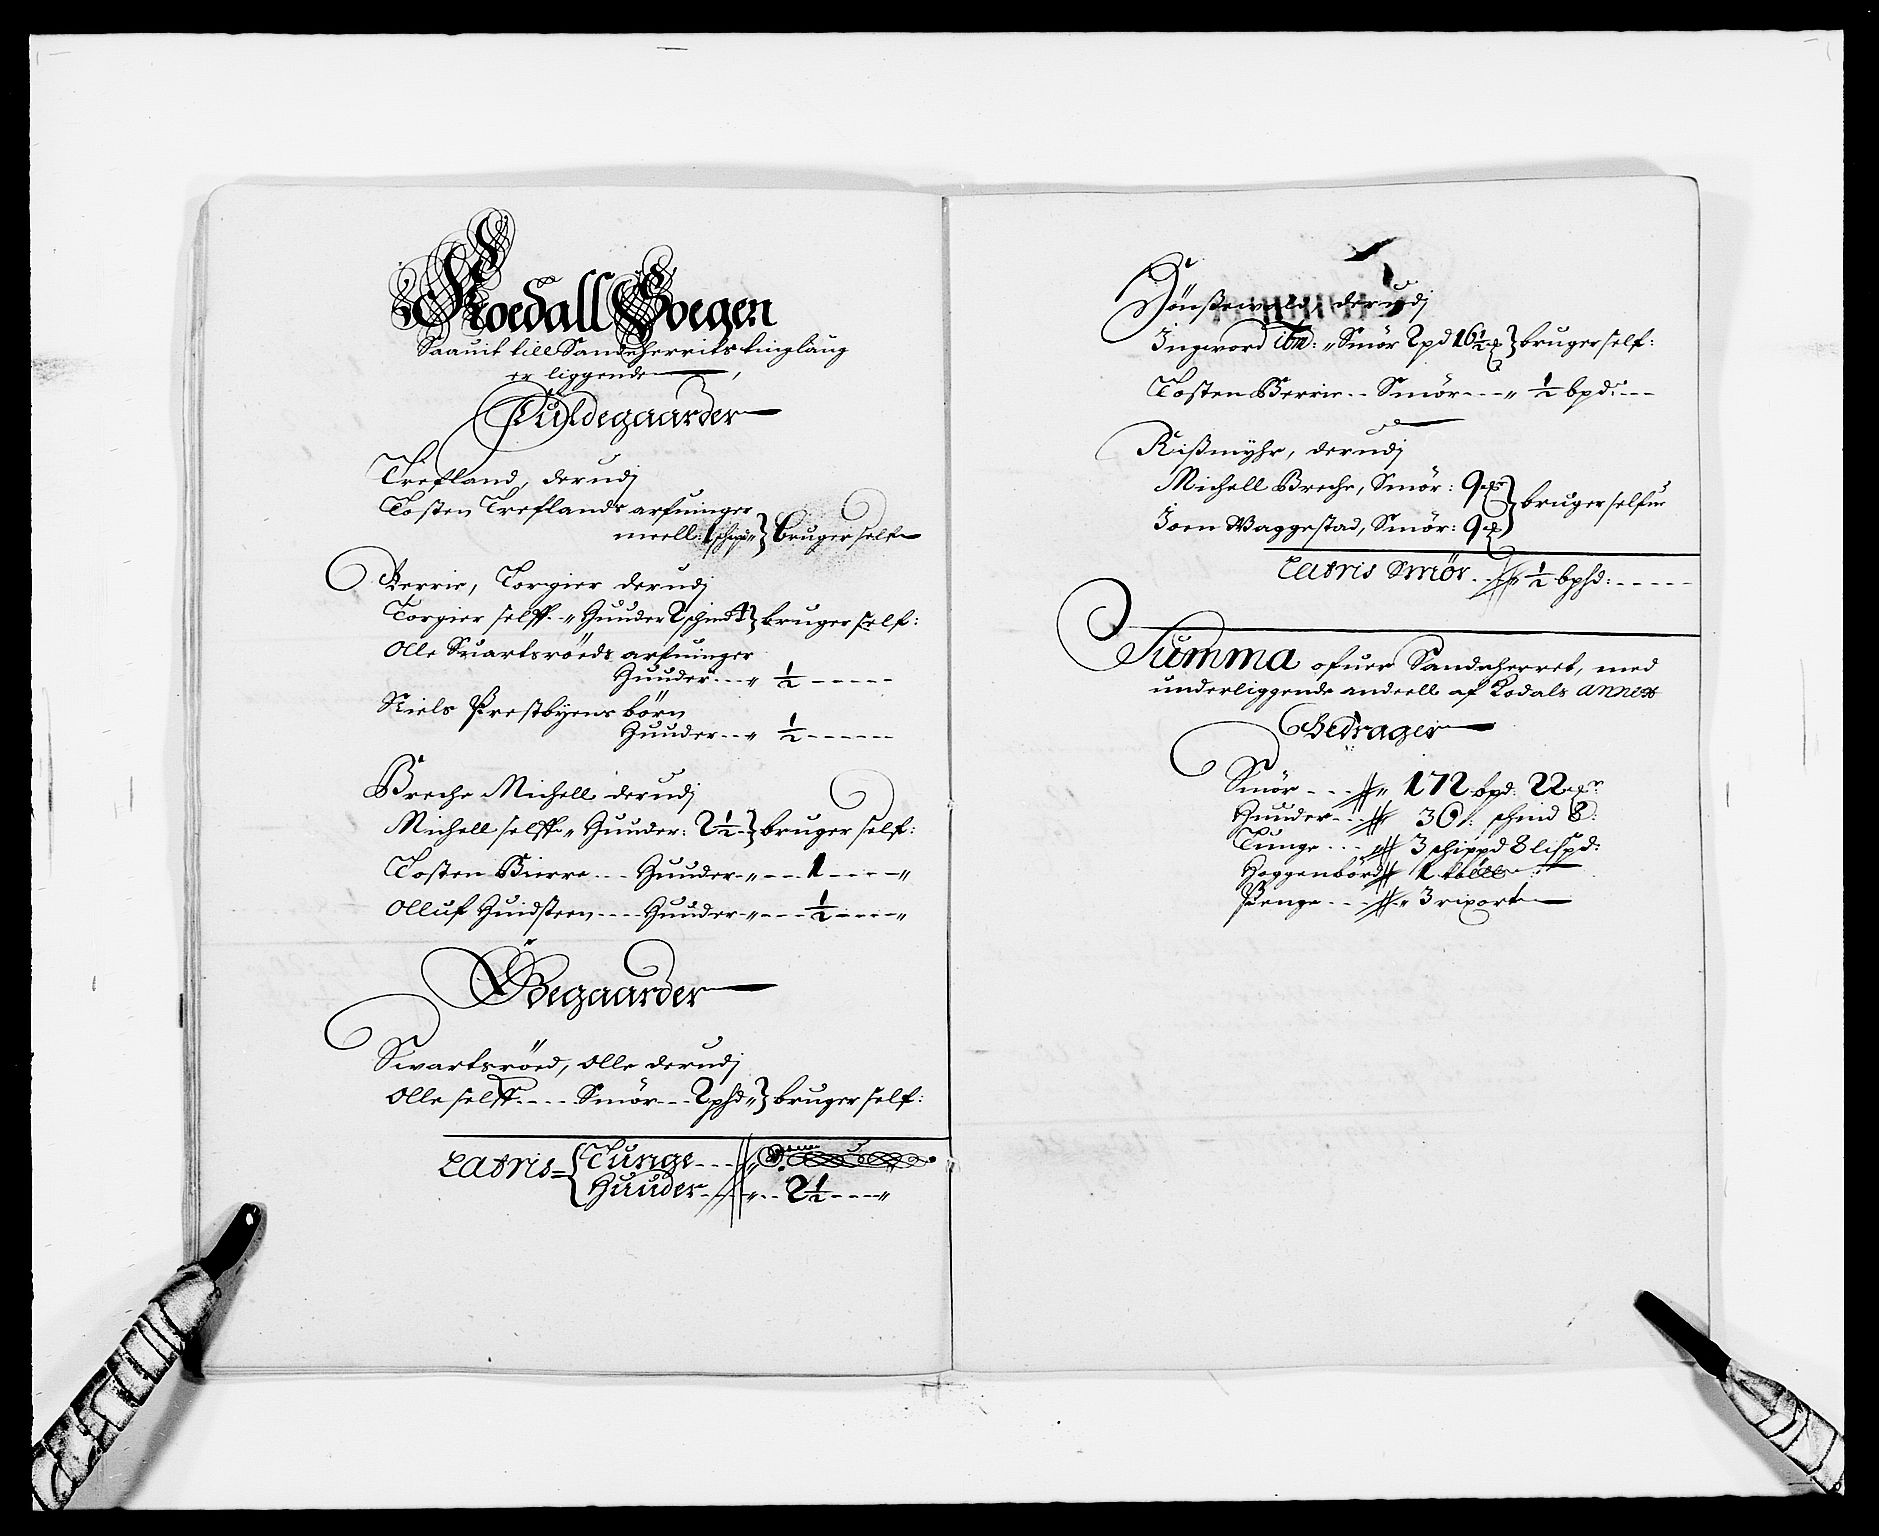 Roedall Soegen
Saauit till Sandeherrits tinglaug
er liggende
Fuldegaarder
Trefland, derudj
Tosten Treflands arfuinger
meell: 1 schip " } bruger self
Berrie, Torgier derudj
Torgier selff " Huuder 2 schind 4 } bruger self:
Olle Suartsröeds arfuinger
Huuder - - " ½ - - - - -
Niels Prestbyens börn
Huuder - - " ½ - - - - -
Breche Michell derudj
Michell selff " Huuder: 2½ - } bruger self:
Tosten Bierre - - - Huuder - " - - 1 - - - - "
Olluf Huidsteen - - - - Huuder - " - - - ½ - - - - "
Ödegaarder
Swartsröed, Olle derudj
Olle selff - - - - Smör - - - 2 phd " } bruger self:
Latris = { Tunge - - - // "
Huuder - - - // " - - 2½ - - - - "
derudj
Ingword ibm: " Smör 2 pd 16½ } bruger self:
Tosten Berrie - - Smör - - - " ½ bpd: - - -
Rißmyhr, derudj
Michell Breche, Smör: 9 } bruger selfuer
Joen Waggestad, Smör: 9
Latris Smör - - // " ½ bphd: - - - - -
Summa ofuer Sandeherret, med
underliggende andeell af Rodals annex
Bedrager
Smör - - - // " 172 bpd: 22
Huuder - - - // 30: schind 8:
Tunge - - - // 3 schippd 8 lispd:
Hoggenbörd // 1
Penge - - - // " 3 rixort